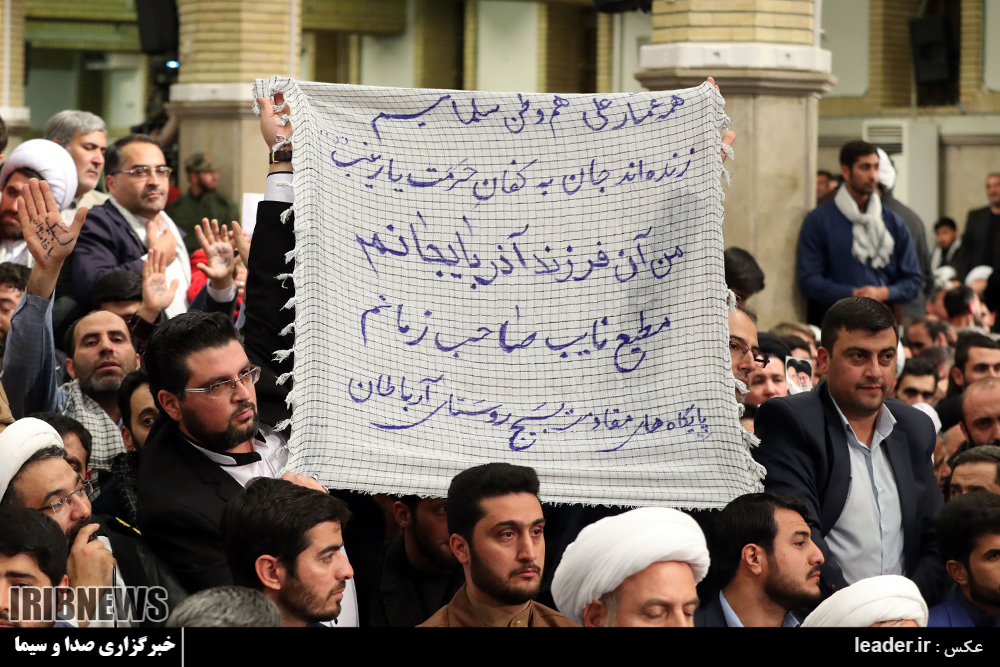 هر عمار علی هم وطن سلما سیم
زنده اند جان به کفان حرمت یا زینب
من آن فرزند آذربایجانم
مطیع نایب صاحب زمانم
پایگاه های مقاومت بسیج روستای آریاطان
IRIBNEWS
خبرگزاری صدا و سیما
عکس : leader.ir